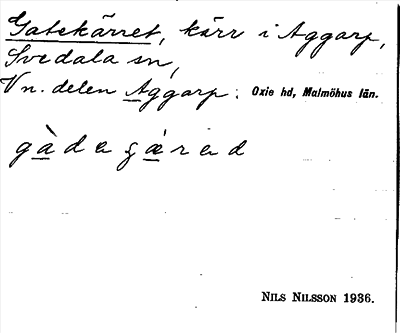 Gatekärret, kärr i Aggarp,
Svedala sn,
Vn. delen Aggarp. Oxie hd, Malmöhus län.
NILS NILSSON 1936.